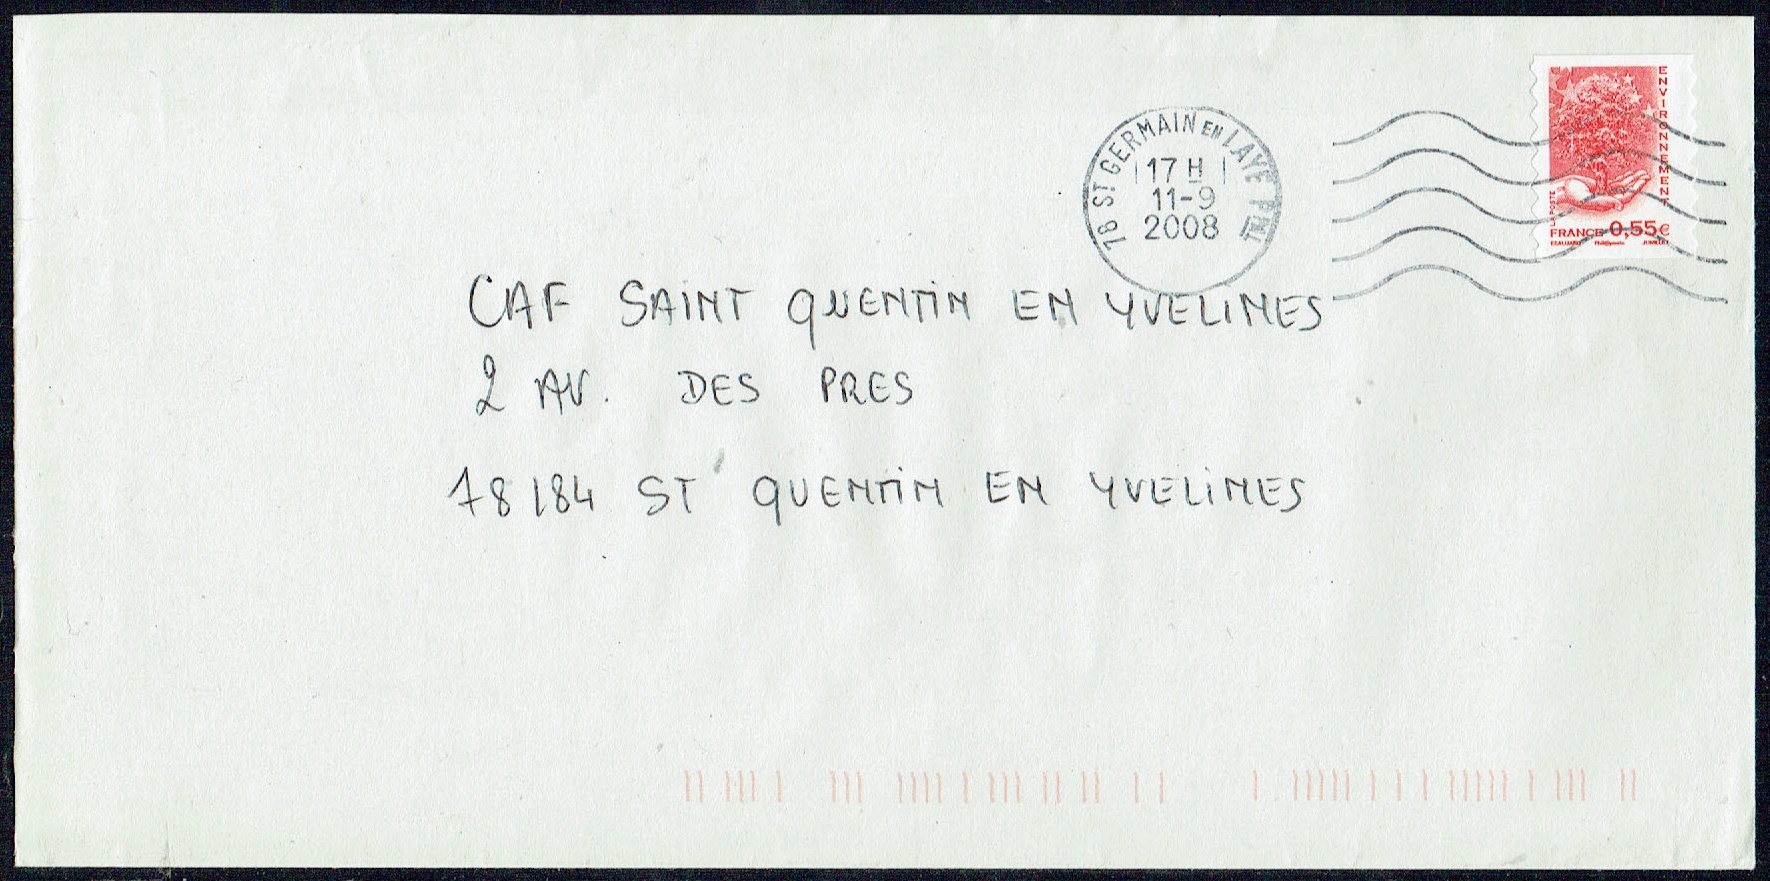 78 ST GERMAIN EN LAYE PPAL
17 H
11-9
2008
ENVIRONNEMENT
LA POSTE
FRANCE 0,55€
BEAUJARD Phil@poste JUMELET
CAF SAINT QUENTIN EN YVELINES
2 AV. DES PRES
78184 ST QUENTIN EN YVELINES